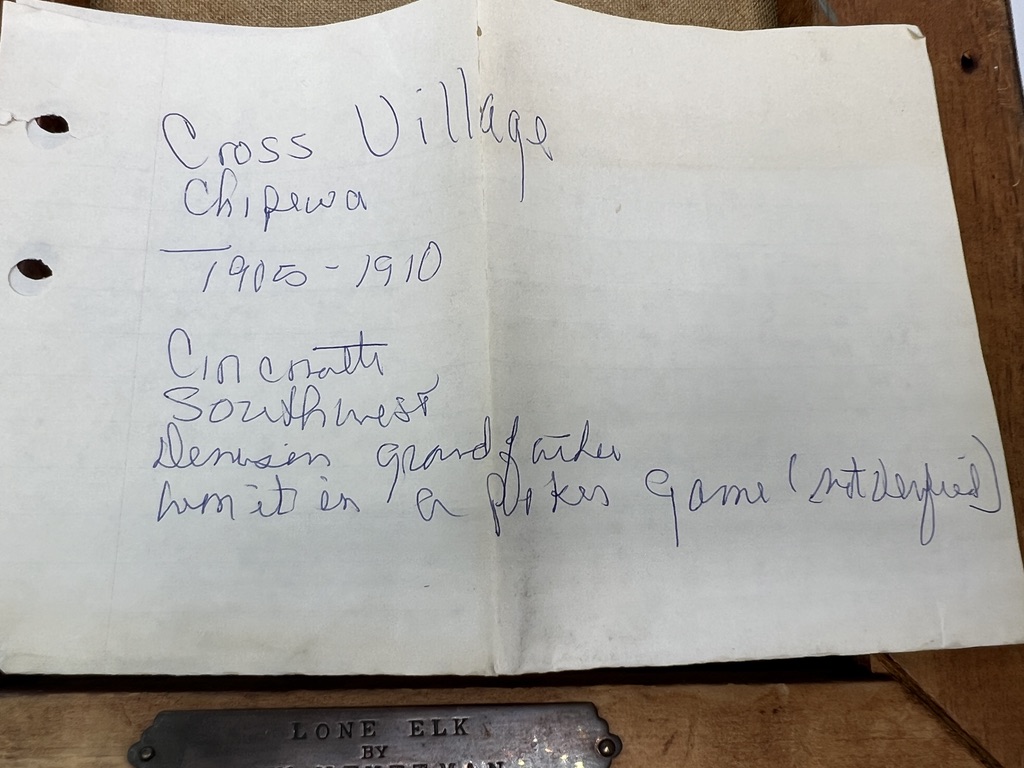 Cross Village
Chipewa
1905 - 1910
Cincinatti
Southwest
grandfather
it in a Poker game (not Verfied)
LONE ELK
BY